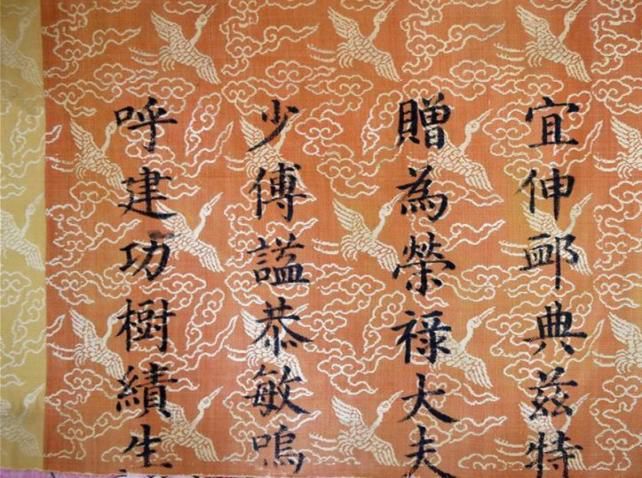 宜伸䘏典茲特
贈為榮祿大夫
少傅謚恭敏嗚
呼建功樹績生